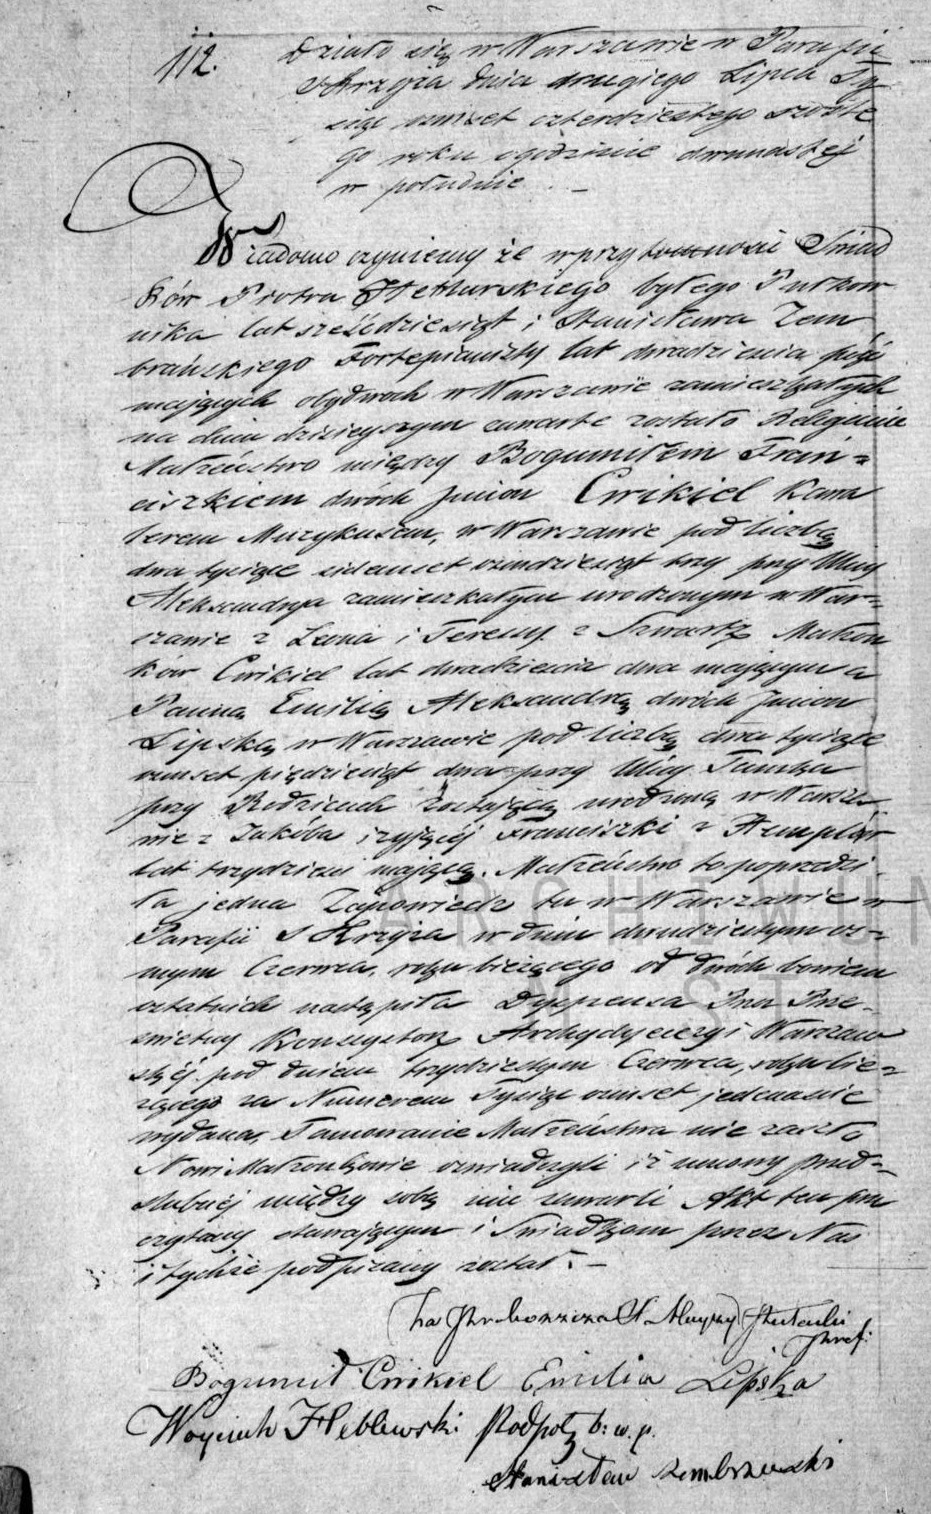 112.
Działo się w Warszawie w Parafii
S Krzyża dnia drugiego Lipca Ty
siąc ośmset czterdziestego szóste
go roku o godzinie dwunastej
w południe. –
Wiadomo czyniemy że w przytomności Swiad
ków Piotra byłego Pułkow
nika lat sześćdziesiąt i Stanisława Zem
brzuskiego Fortepianisty lat dwadzieścia pięć
mających obydwoch w Warszawie zamieszkałych
na dniu dzisieyszym zawarte zostało Religijne
Małżeństwo między Bogumiłem Fran=
ciszkiem dwóch Jmion Cwikiel Kawa
lerem Muzykusem, w Warszawie pod liczbą
dwa tysiące siedmset ośmdziesiąt trzy przy Ulicy
Aleksandrya zamieszkałym urodzonym w War=
szawie z Leona i Teressy z Szwartz Małżon
ków Cwikiel lat dwadzieścia dwa mającym a
Panną Emilią Aleksandrą dwóch Jmion
Lipską w Warszawie pod liczbą dwa tysiące
ośmset pięćdziesiąt dwa przy Ulicy Tamka
przy Rodzicach zostającą urodzoną w Warsza
wie z Jakóba i żyjącej Franciszki z
lat trzydzieści mającą. Małżeństwo to poprzedzi
ła jedna Zapowiedz tu w Warszawie w
Parafii S Krzyża w dniu dwudziestym os=
mym Czerwca, roku bieżącego od dwóch bowiem
ostatnich nastąpiła Dyspensa Prze
swietny Konsystorz Archydyecezyi Warszaw
skiéj pod dniem trzydziestym Czerwca, roku bie=
żącego za Numerem Tysiąc ośmset jedenaście
wydana, Tamowanie Małżeństwa nie zaszło
Nowi Małżonkowie oświadczyli iż umowy przed=
slubnéj między sobą nie zawarli Akt ten prze
czytany stawającym i Swiadkom przez Nas
i tychże podpisany został. –
Za
Bogumił Cwikiel Emilia Lipska
Woyciech Heblewski Podpółk b: w. p.
Stanisław Zembrzuski
ARCHIWUM